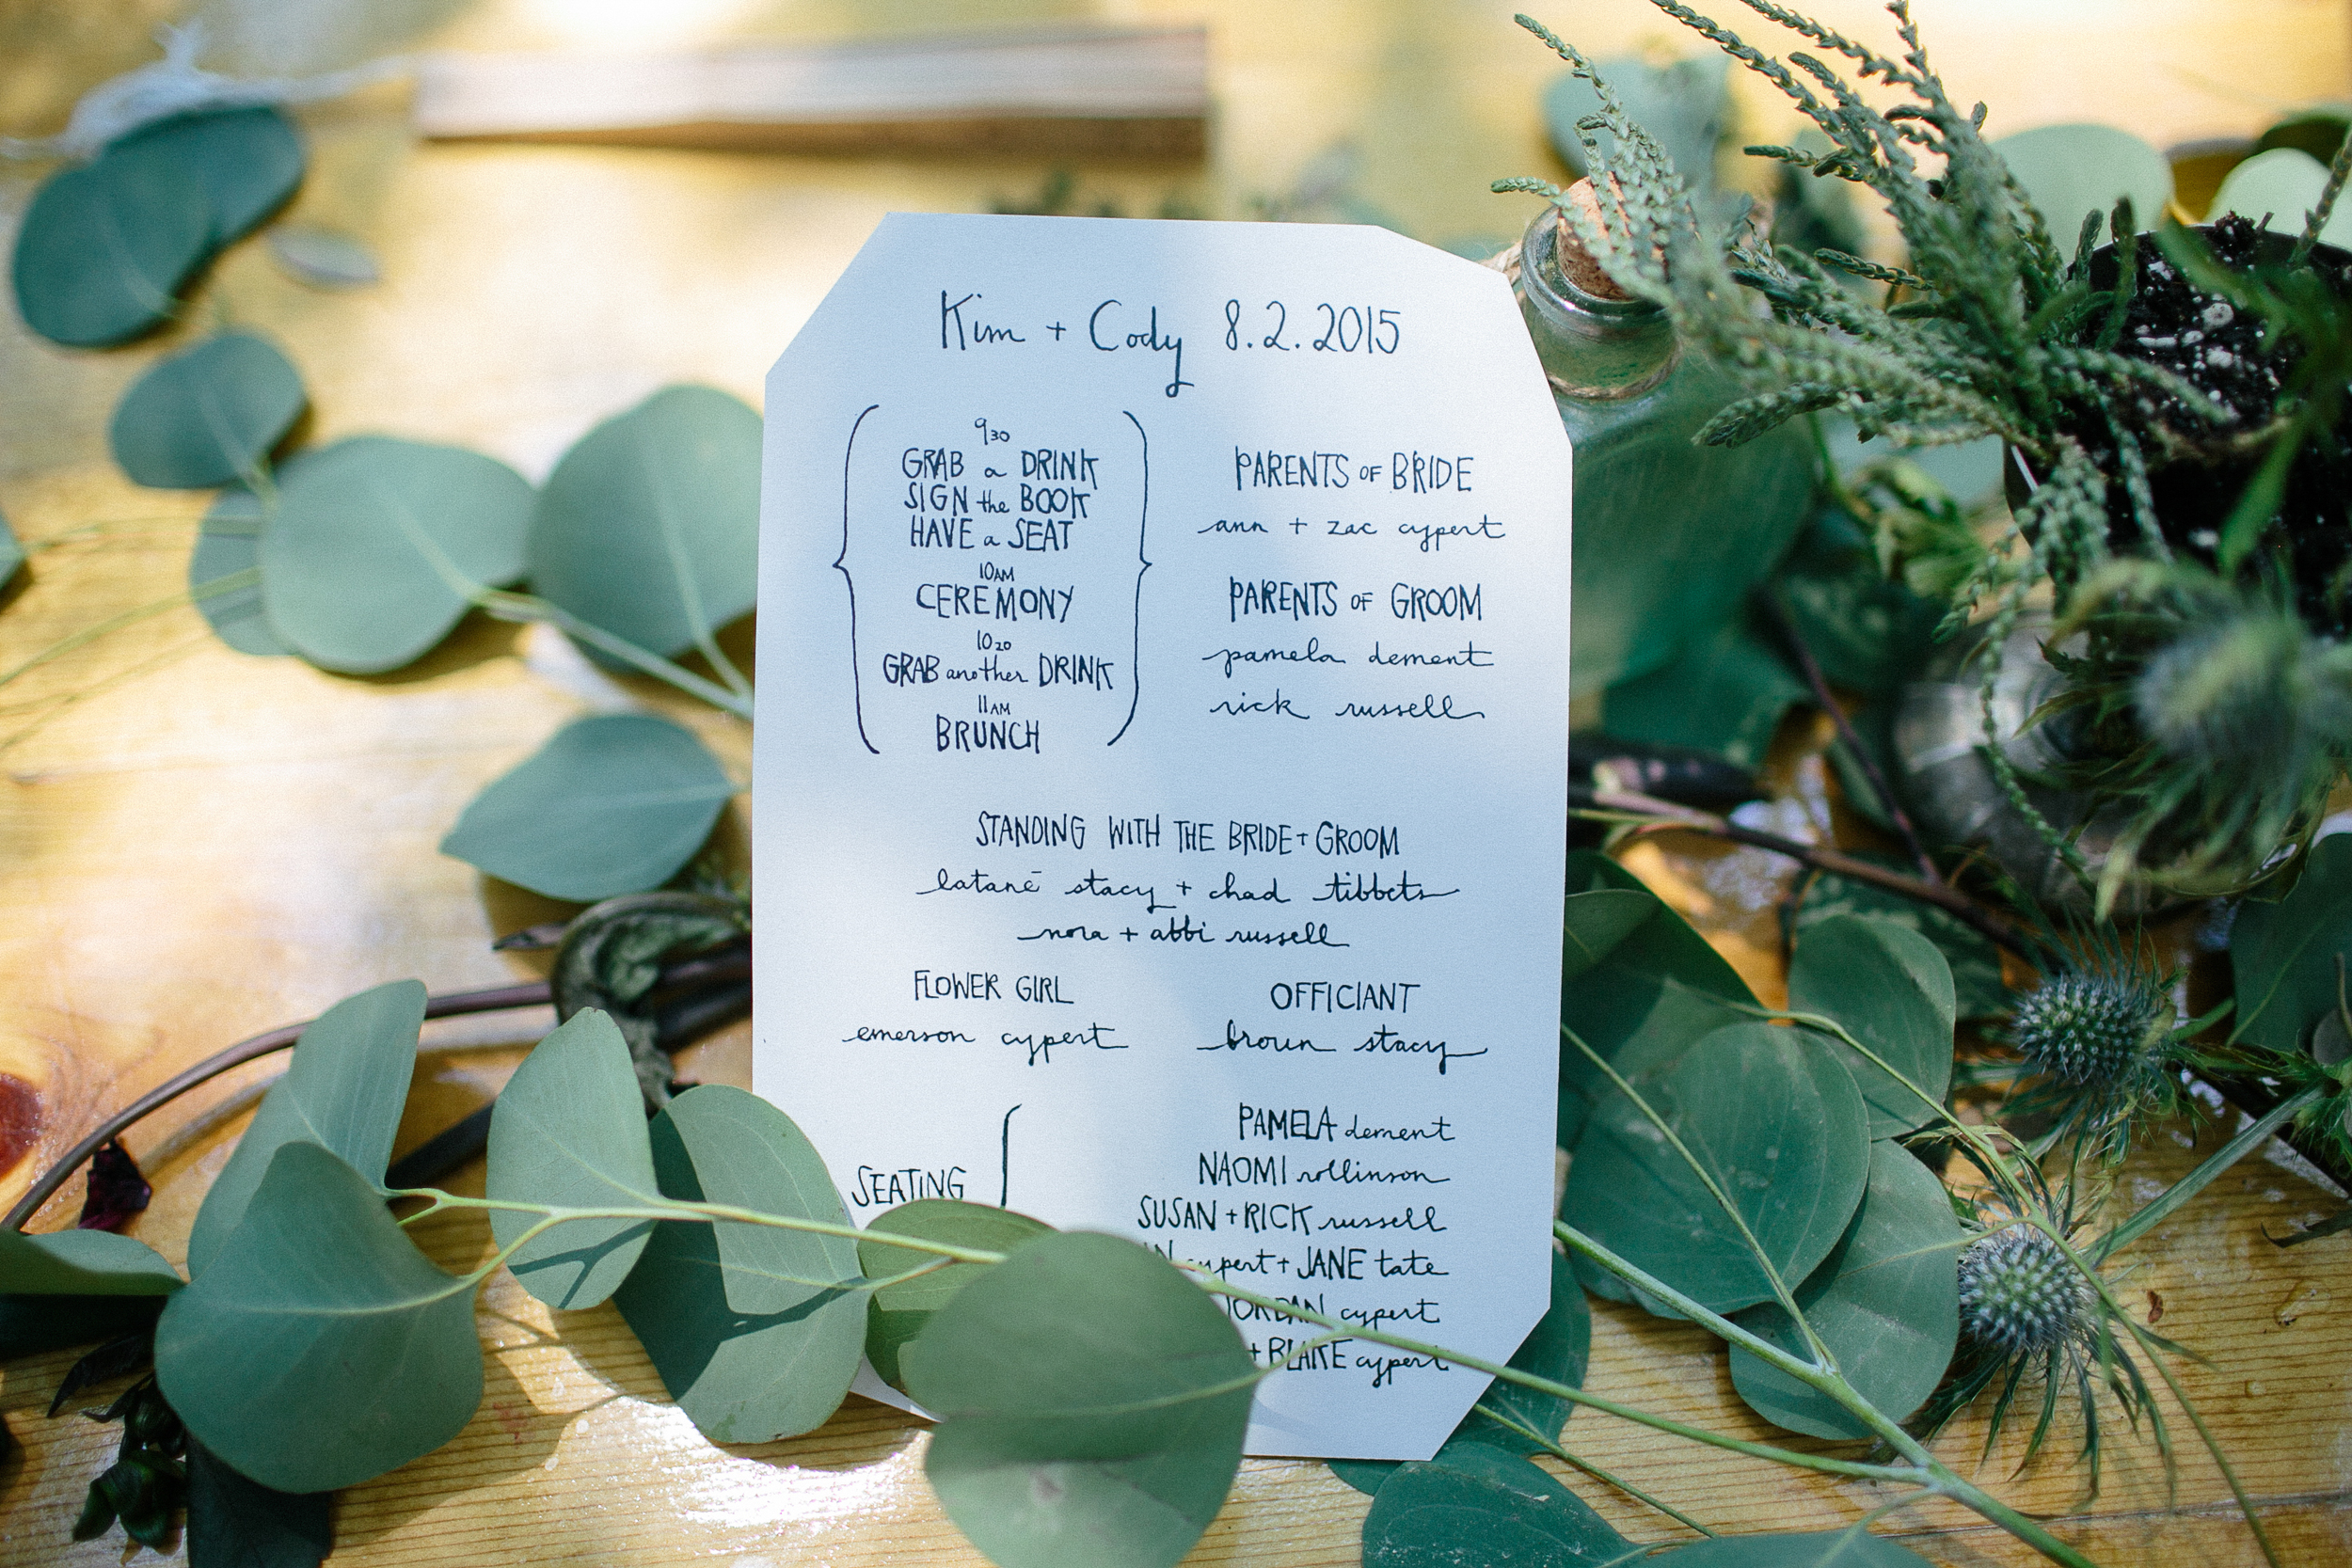 Kim + Cody 8.2.2015
930
GRAB a DRINK
SIGN the BOOK
HAVE a SEAT
10AM
CEREMONY
1020
GRAB another DRINK
11AM
BRUNCH
PARENTS OF BRIDE
ann + zac cypert
PARENTS OF GROOM
pamela dement
rick russell
STANDING WITH THE BRIDE + GROOM
latanē stacy + chad tibbets
nora + abbi russell
FLOWER GIRL
emerson cypert
OFFICIANT
broun stacy
SEATING
PAMELA dement
NAOMI rollinson
SUSAN + RICK russell
cypert + JANE tate
JORDAN cypert
+ BLAKE cypert